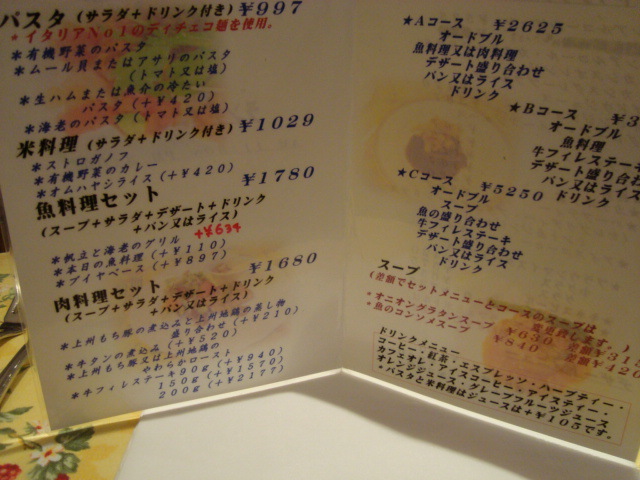 パスタ (サラダ+ドリンク付き) ¥997
*イタリアNo1のディチェコ麺を使用。
*有機野菜のパスタ
*ムール貝またはアサリのパスタ
(トマト又は塩)
*生ハムまたは魚介の冷たい
パスタ (+¥420)
*海老のパスタ (トマト又は塩)
米料理 (サラダ+ドリンク付き) ¥1029
*ストロガノフ
*有機野菜のカレー
*オムハヤシライス (+¥420)
魚料理セット ¥1780
(スープ+サラダ+デザート+ドリンク
+パン又はライス)
+¥634
*帆立と海老のグリル
*本日の魚料理 (+¥110)
*ブイヤベース (+¥897)
肉料理セット ¥1680
(スープ+サラダ+デザート+ドリンク
+パン又はライス)
*上州もち豚の煮込みと上州地鶏の蒸し物
盛り合わせ (+¥210)
*牛タンの煮込み (+¥520)
*上州もち豚又は上州地鶏の
やわらかロースト
*牛フィレステーキ90g (+¥940)
150g (+¥1570)
200g (+¥2177)
★Aコース ¥2625
オードブル
魚料理又は肉料理
デザート盛り合わせ
パン又はライス
ドリンク
★Bコース ¥3
オードブル
魚料理
牛フィレステーキ
デザート盛り合わ
パン又はライス
ドリンク
★Cコース ¥5250
オードブル
スープ
魚の盛り合わせ
牛フィレステーキ
デザート盛り合わせ
パン又はライス
ドリンク
スープ
(差額でセットメニューとコースのスープは
変更致します。)
*オニオングラタンスープ ¥630 差額¥310
*魚のコンソメスープ ¥840 差額¥420
ドリンクメニュー
コーヒー・紅茶・エスプレッソ・ハーブティー・
カフェオレ・アイスコーヒー・アイスティー・
オレンジジュース・グレープフルーツジュース
*パスタと米料理はジュースは+¥105です。